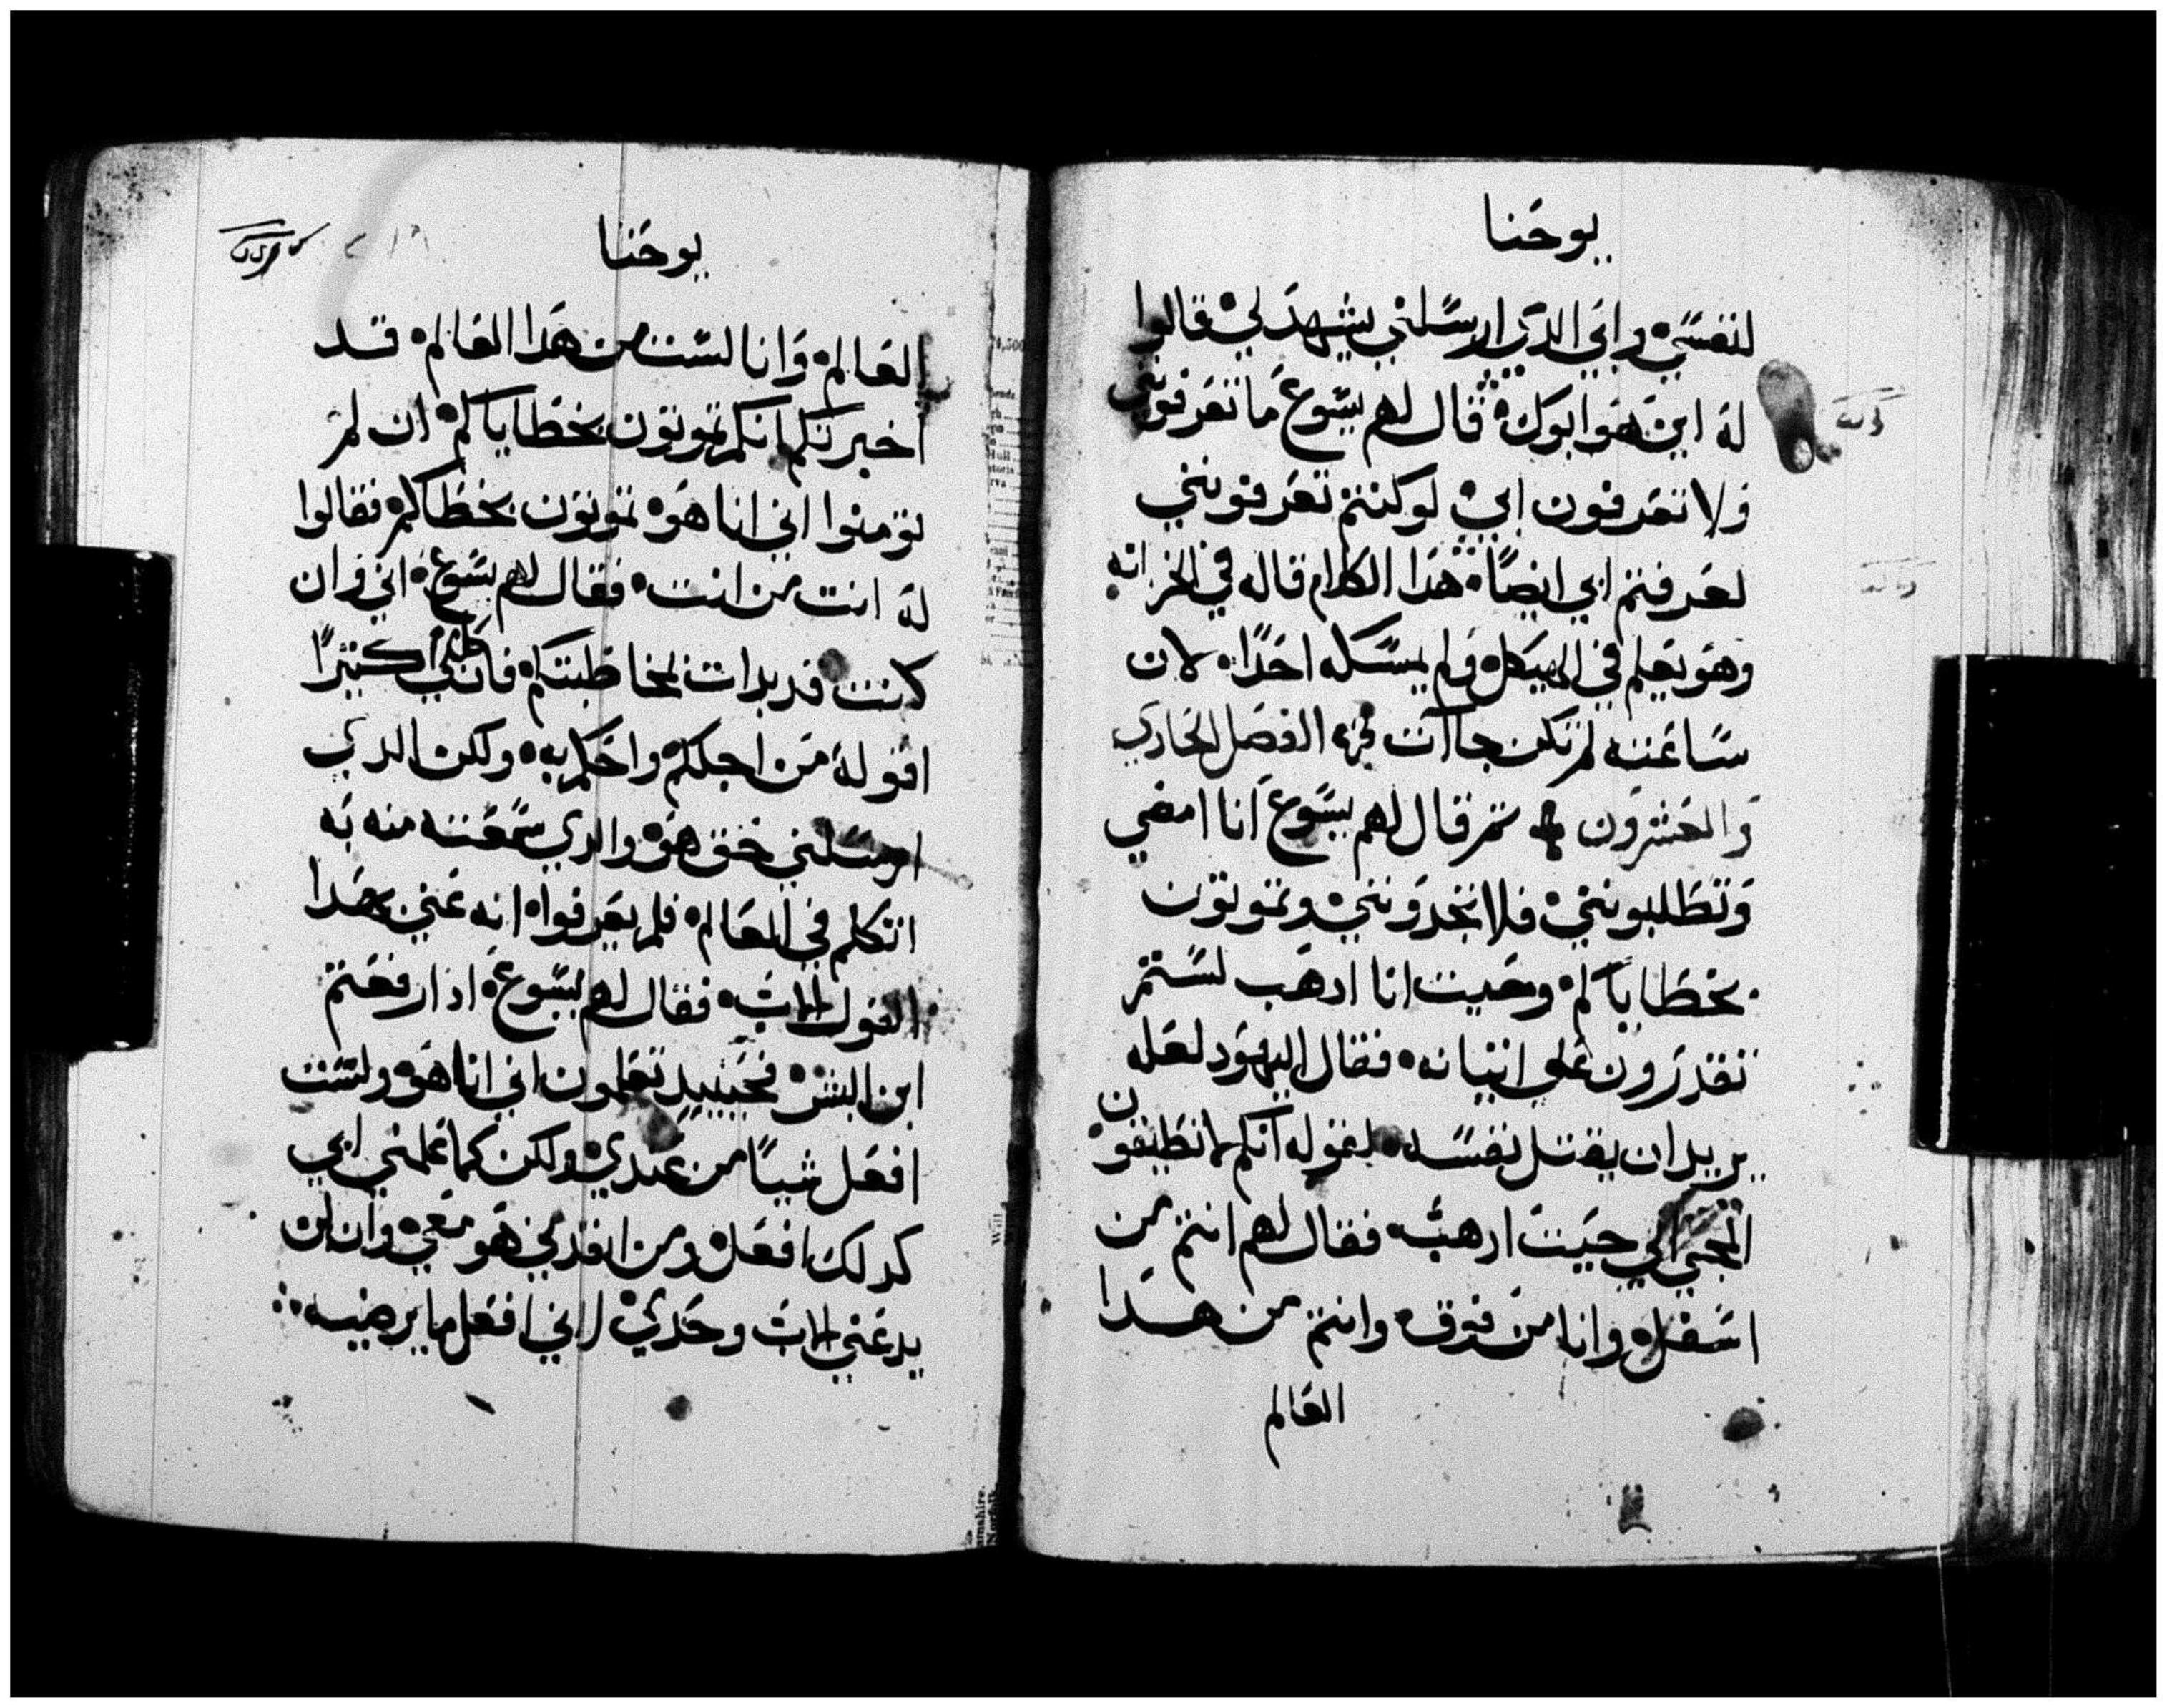 يوحنا
لنفسي وابي الدي ارسلني يشهد لي قالوا
له اين هو ابوك قال لهم يسوع ما تعرفوني
ولا تعرفون ابي لو كنتم تعرفونني
لعرفتم ابي ايضًا هدا الكلام قاله في الخزانه
وهو يعلم في الهيكل ولم يمسكه احدًا لان
ساعته لم تكن جاات الفصل الحادي
والعشرون ثم قال لهم يسوع انا امضي
وتطلبونني فلا تجدونني وتموتون
بخطاياكم وحيت انا ادهب لستم
تقدرون علي اتيانه فقال اليهود لعله
يريد ان يقتل نفسه لقوله انكم لا تطيقون
المجي الي حيت ادهب فقال لهم انتم من
اسفل وانا من فوق وانتم من هدا
العالم
يوحنا
العالم وانا لست من هدا العالم قد
اخبرتكم انكم تموتون بخطاياكم ان لم
تومنوا اني انا هو تموتون بخطاكم فقالوا
له انت من انت فقال لهم يسوع اني وان
كنت قد بدات لخاطبتكم فان لي كثيرًا
اقوله من اجلكم واحكم به ولكن الدي
ارسلني حق هو والدي سمعته منه به
اتكلم في العالم فلم يعرفوا انه عني بهدا
القول الاب فقال لهم يسوع ادا رفعتم
ابن البشر فحينيد تعلمون اني انا هو ولست
افعل شيًا من عندي ولكن كما علمني ابي
كدلك افعل ومن انفدني هو معي وان لن
يدعني الاب وحدي لاني افعل ما يرضيه